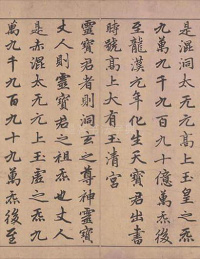 是混洞太无元高上玉皇之炁
九万九千九百九十億萬炁後
至龍漢元年化生天寳君出書
時號高上大有玉清宮
靈寳君者則洞玄之尊神靈寳
丈人則靈寳君之祖炁也丈人
是赤混太无元上玉虛之炁九
萬九千九百九十九萬炁後至